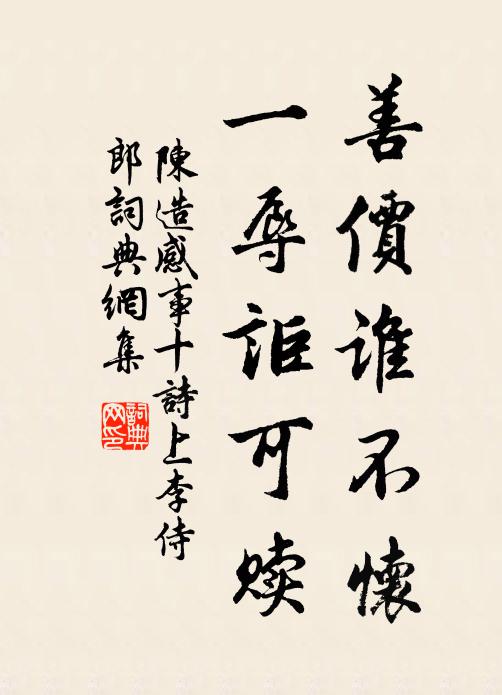 善價誰不懷
一辱詎可赎
陳造感事十詩上李侍
郎詞典網集
詞典网印